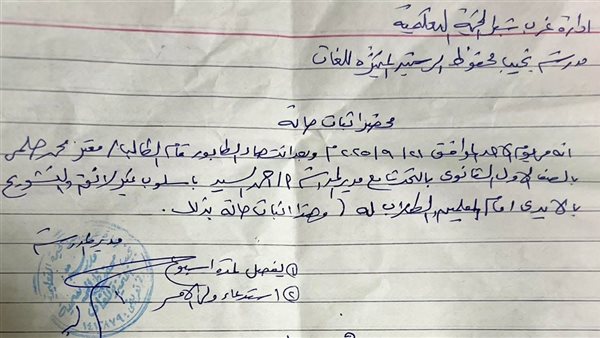 ادارة غرب شبرا الخيمة التعليمية
مدرسة نجيب محفوظ الرسمية المتميزة للغات
محضر اثبات حالة
انه في يوم الاحد الموافق ٢١ / ٩ / ٢٠٢٥م وبعد انتهاء الطابور قام الطالب / معتز محمد حلمى
بالصف الاول الثانوى بالتحدث مع مدير المدرسة أ / احمد السيد باسلوب غير لائق والتشويح
بالايدى امام المعلمين والطلاب له ( وهذا اثبات حالة بذلك .
مدير المدرسة
① يفصل لمدة اسبوع
② استدعاء ولى الامر